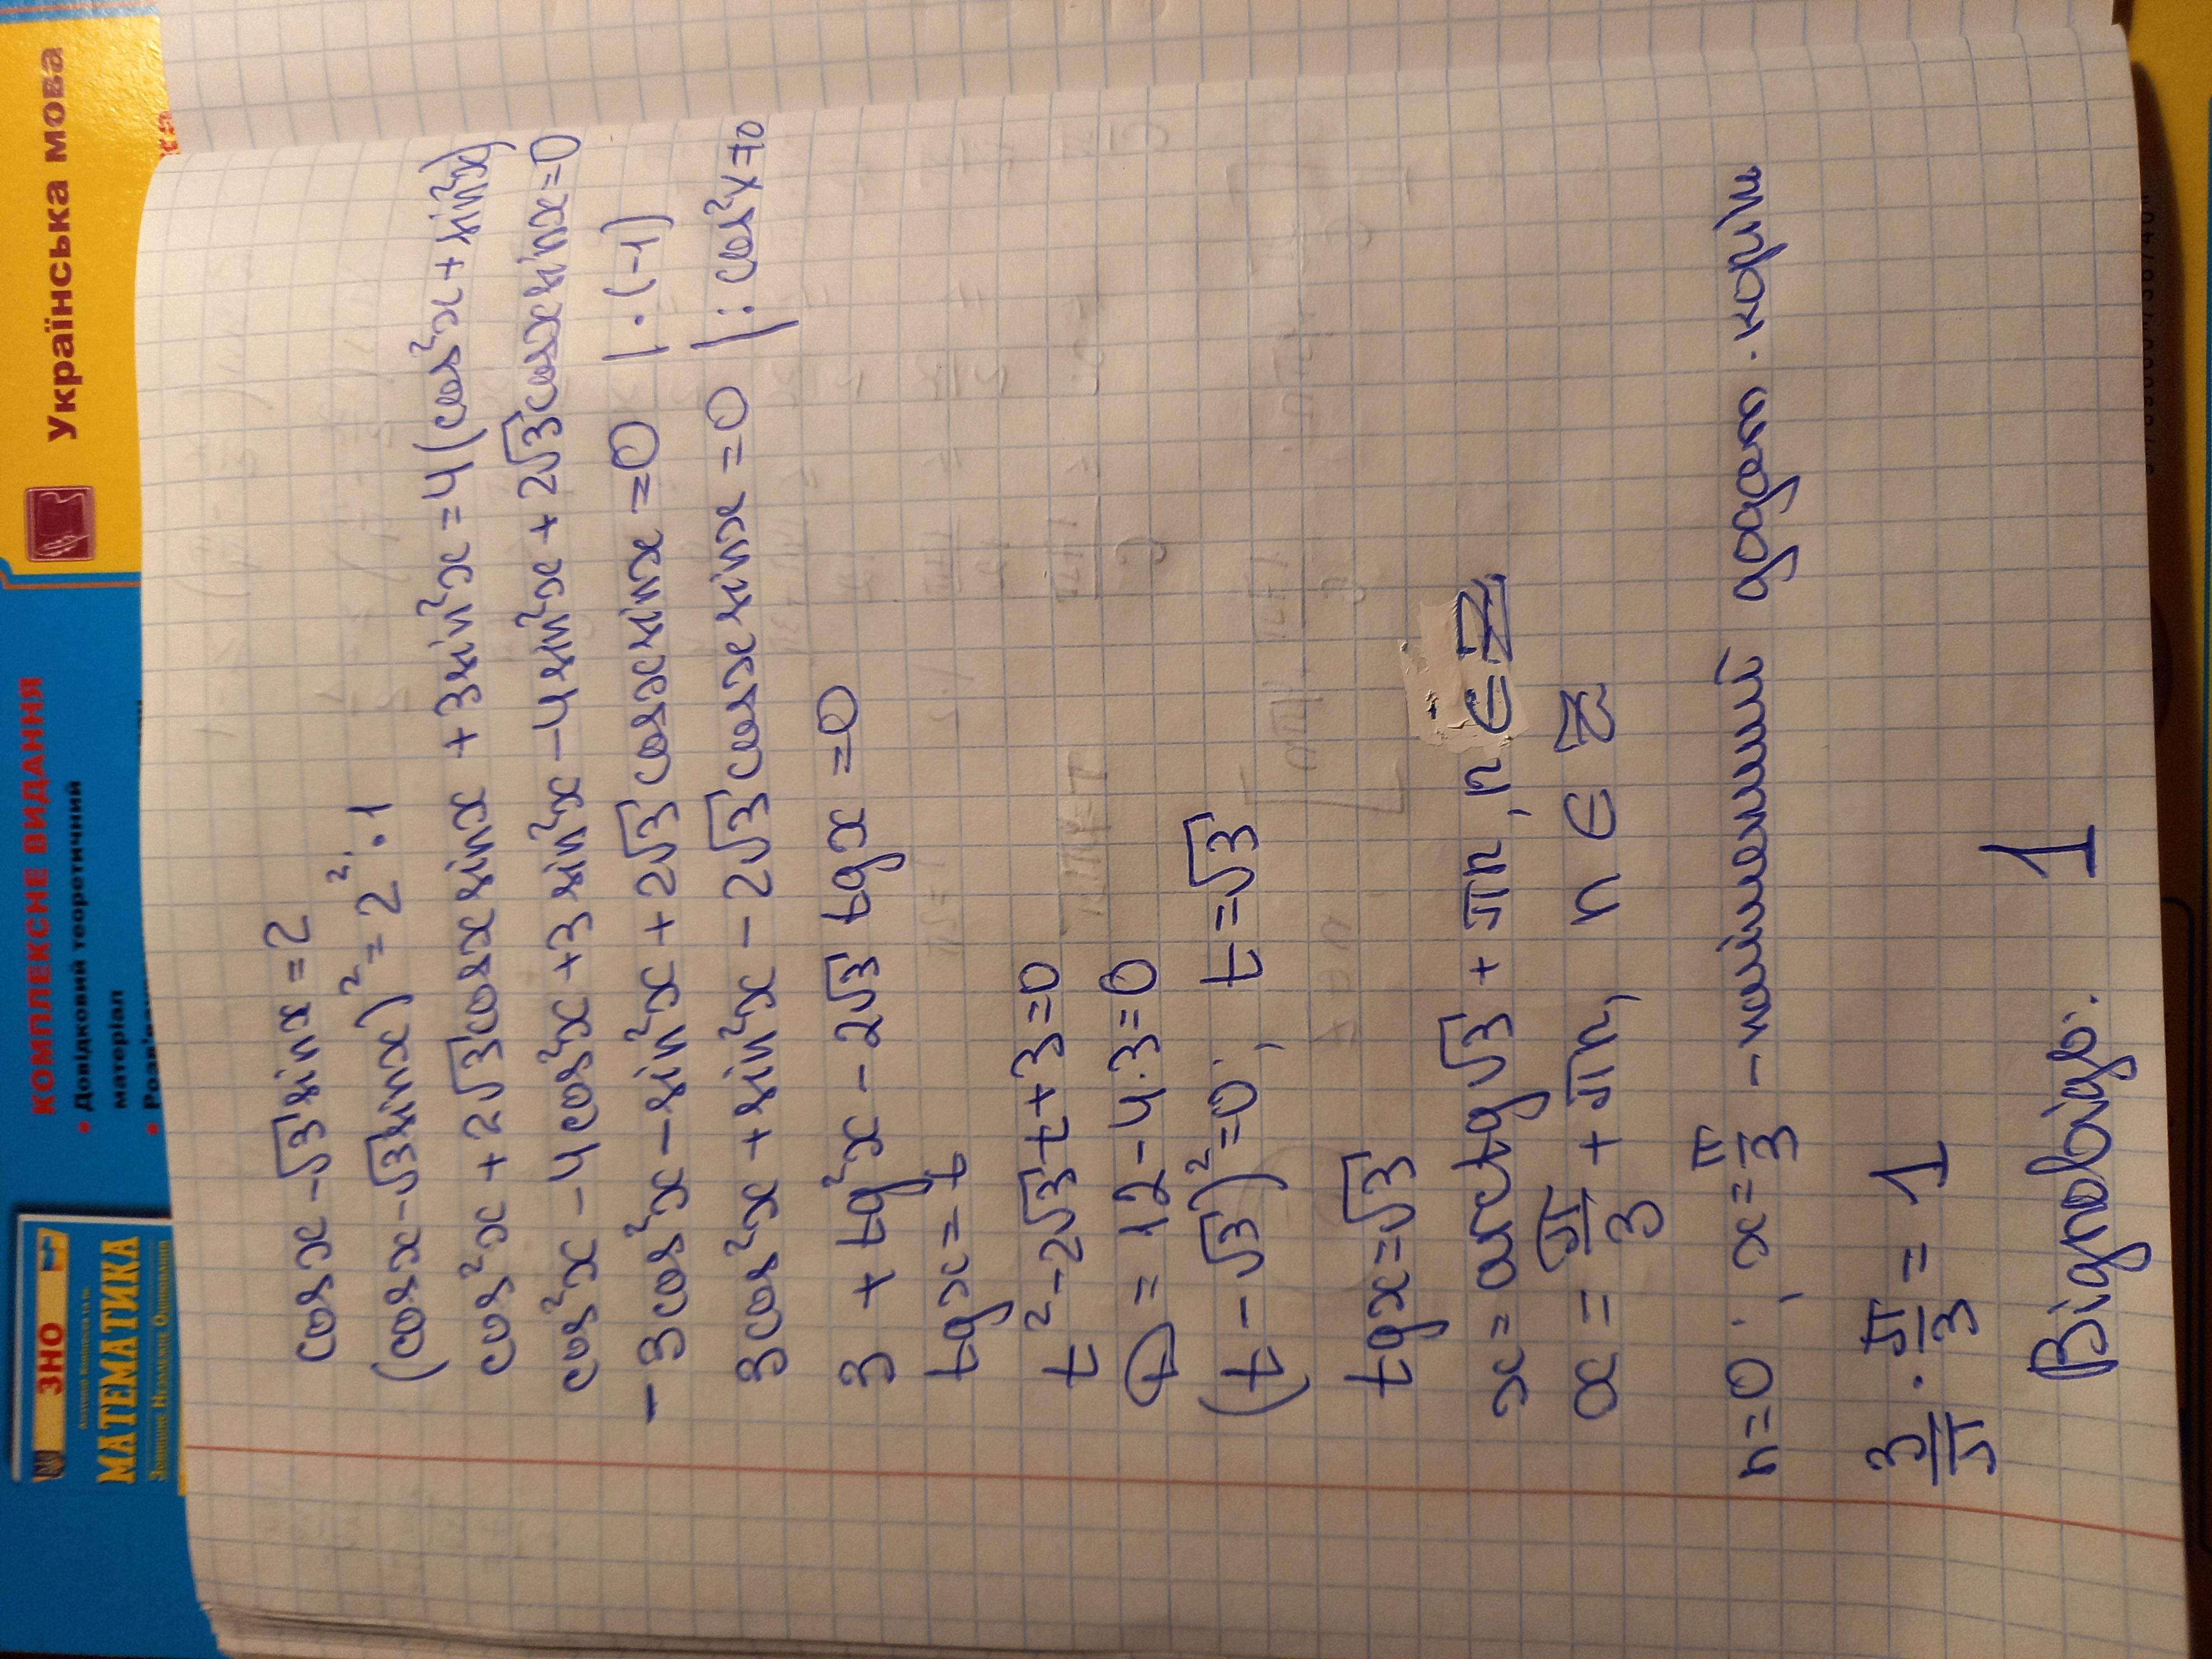 КОМПЛЕКСНЕ ВИДАННЯ
• Довідковий теоретичний
матеріал
Українська мова
ЗНО
МАТЕМАТИКА
Зовнішнє Незалежне Оцінювання
cos x - √3 sin x = 2
(cos x - √3 sin x)² = 2² · 1
cos² x + 2√3 cos x sin x + 3 sin² x = 4 (cos² x + sin² x)
cos² x - 4 cos² x + 3 sin² x - 4 sin² x + 2√3 cos x sin x = 0
- 3 cos² x - sin² x + 2√3 cos x sin x = 0 | · (-1)
3 cos² x + sin² x - 2√3 cos x sin x = 0 | : cos² x ≠ 0
3 + tg² x - 2√3 tg x = 0
tg x = t
t² - 2√3 t + 3 = 0
D = 12 - 4 · 3 = 0
(t - √3)² = 0 ; t = √3
tg x = √3
x = arctg √3 + πn, n ∈ Z
x = π/3 + πn, n ∈ Z
n = 0 ; x = π/3 - найменший додат. корінь
3/π · π/3 = 1
Відповідь: 1